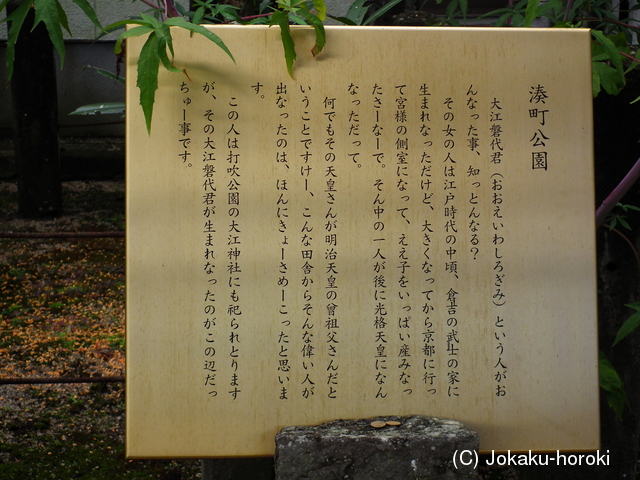 湊町公園
大江磐代君（おおえいわしろぎみ）という人がお
んなった事、知っとんなる？
その女の人は江戸時代の中頃、倉吉の武士の家に
生まれなっただけど、大きくなってから京都に行っ
て宮様の側室になって、ええ子をいっぱい産みなっ
たさーなーで。そん中の一人が後に光格天皇になん
なっただって。
何でもその天皇さんが明治天皇の曾祖父さんだと
いうことですけー、こんな田舎からそんな偉い人が
出なったのは、ほんにきょーさめーこったと思いま
す。
この人は打吹公園の大江神社にも祀られとります
が、その大江磐代君が生まれなったのがこの辺だっ
ちゅー事です。
(C) Jokaku-horoki